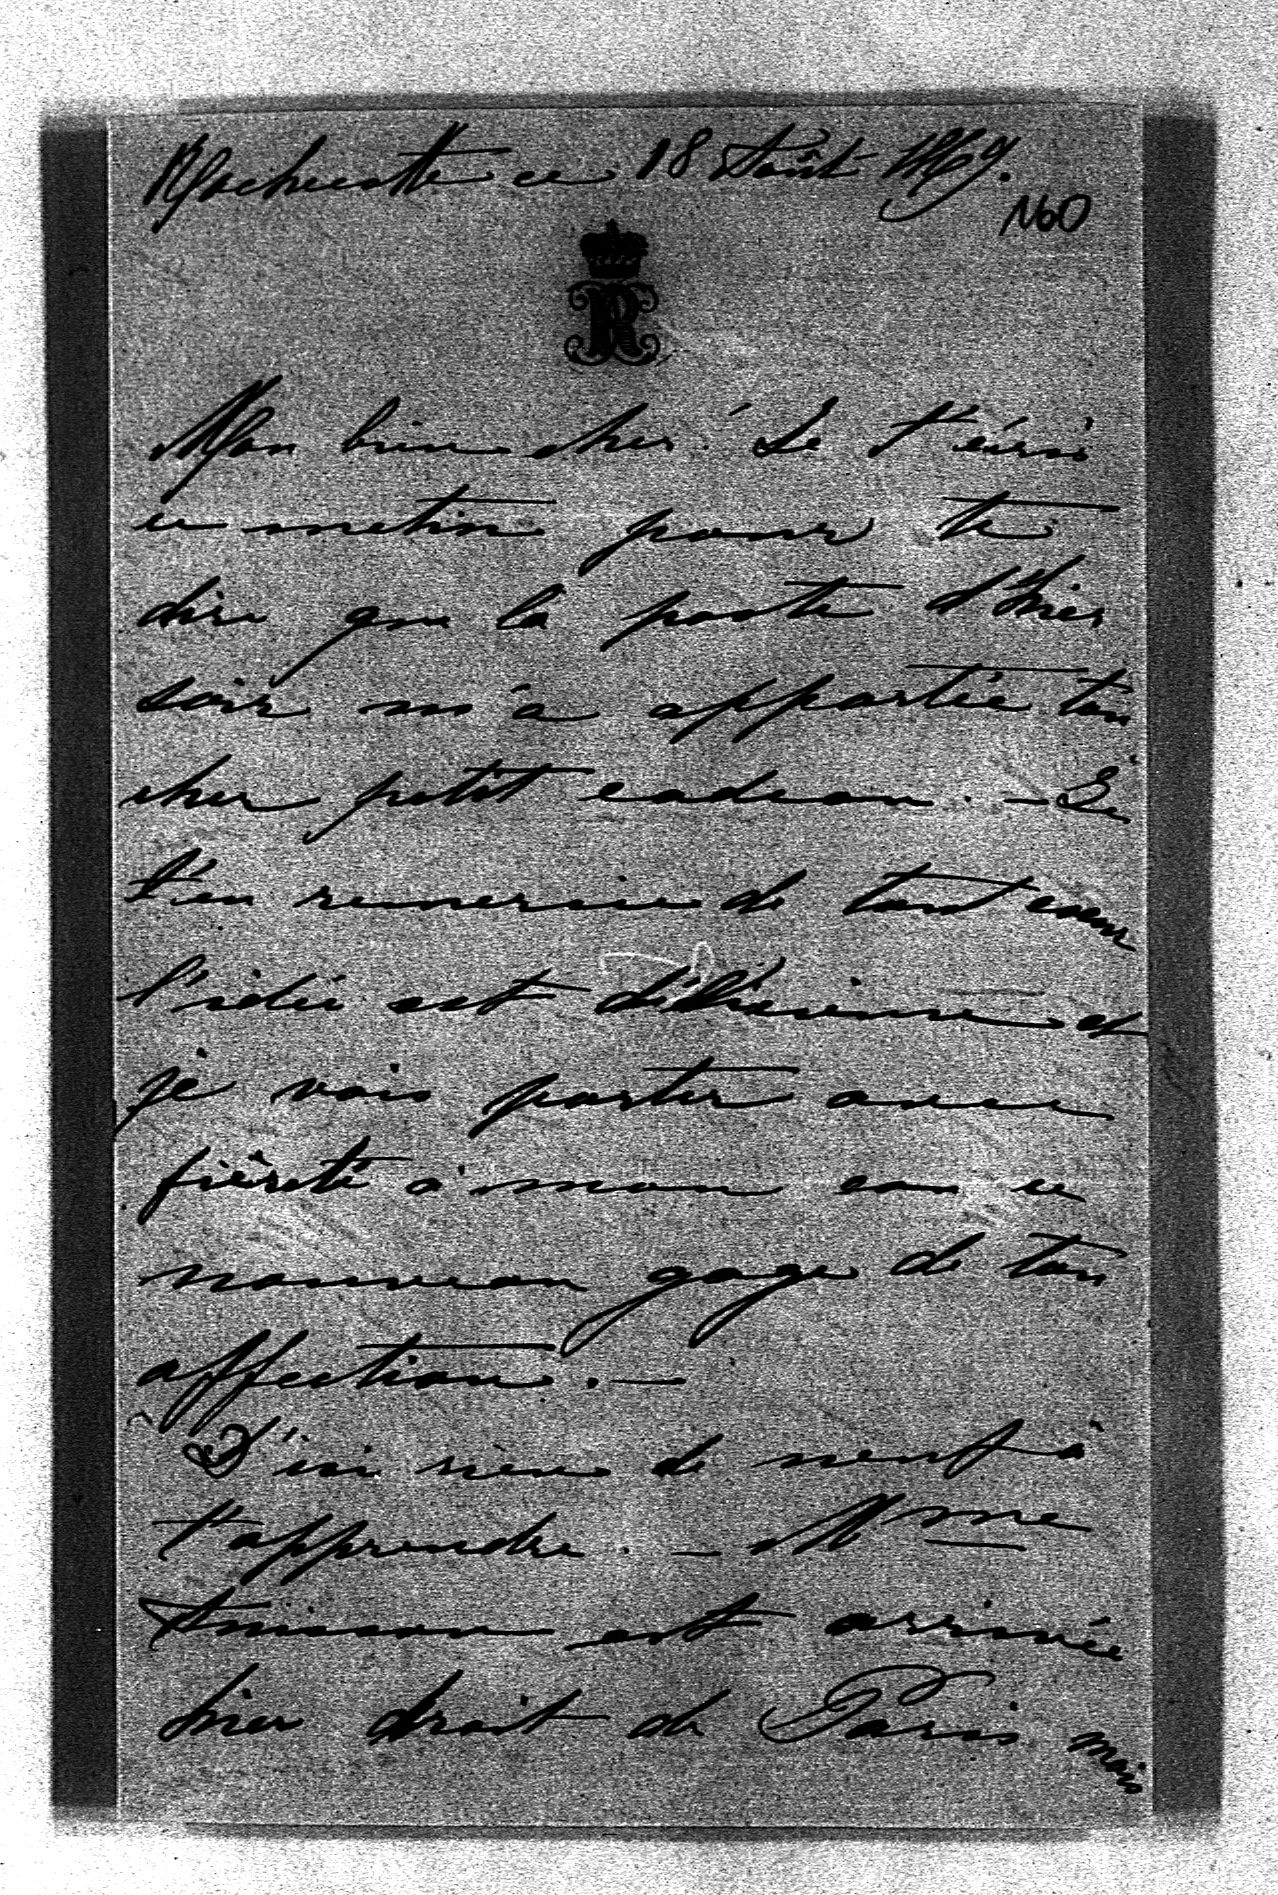 ce 18 Août 1869.
N60
R
Mon bien cher! Je t'écris
ce matin pour te
dire que la poste d'hier
soir m'a apportée ton
cher petit cadeau. - Je
t'en remercie de tout coeur
l'idée est délicieuse et
je vais porter avec
fièreté à mon cou ce
nouveau gage de ton
affection. -
D'ici rien de neuf à
t'apprendre. - Mme
est arrivée
hier droit de Paris mais